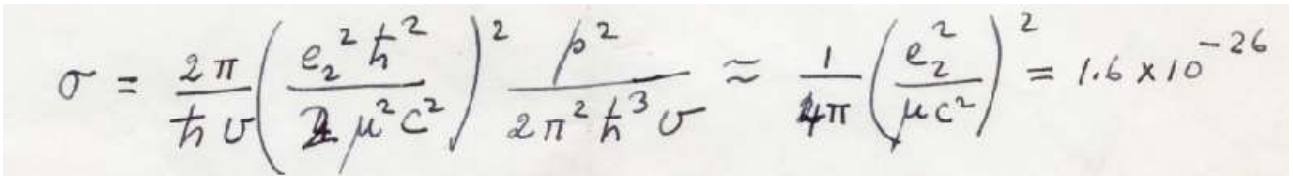 σ = 2π/ħv (e₂²ħ²/2μ²c²)² p²/2π²ħ³v ≈ 1/4π (e₂²/μc²)² = 1.6 × 10⁻²⁶